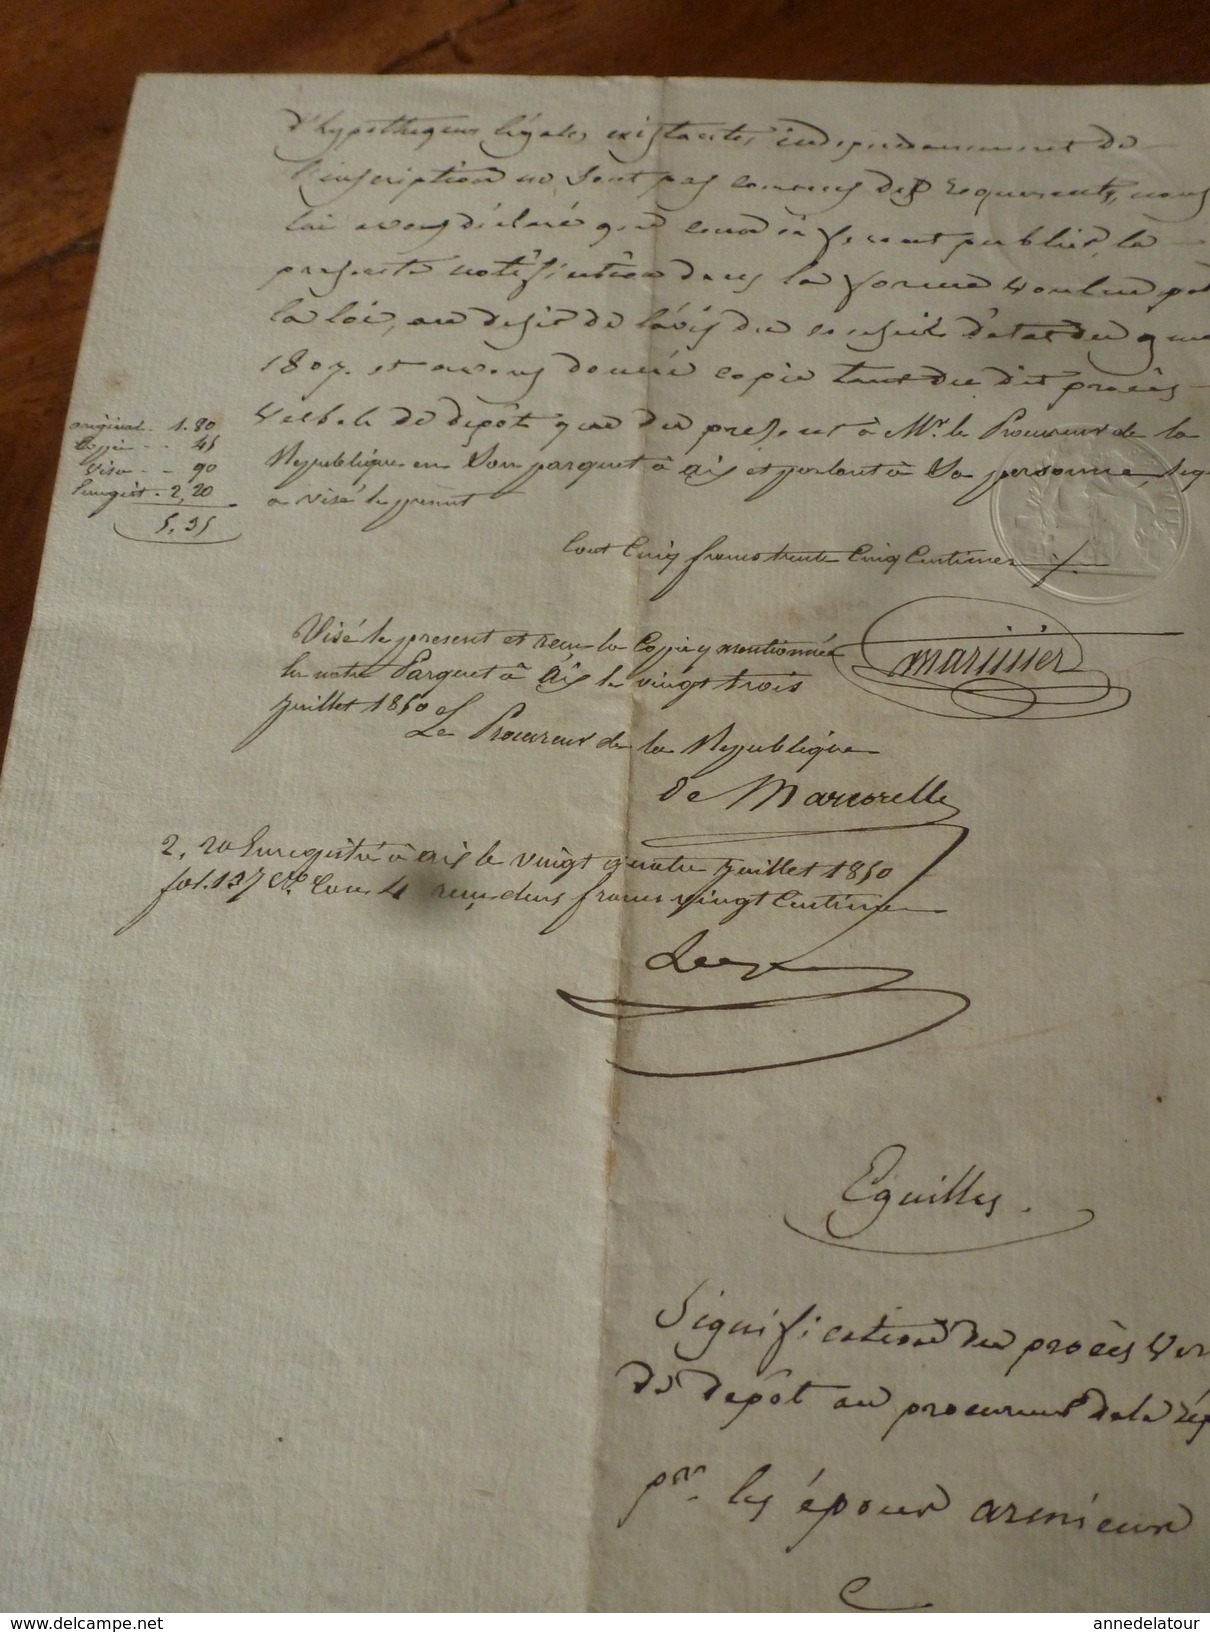 d'hypotheques légales existantes independamment de
l'inscription ne sont pas connus des requerants, nous
lui avons déclaré que ceux ci feront publier la
presente notification dans la forme voulue par
la loi, au desir de l'avis du conseil d'état du 9 mai
1807. et avons donné copie tant du dit procès
verbal de depôt que du present à Mr. le Procureur de la
Republique en son parquet à aix et parlant à sa personne, leq
a visé le present
original . 1. 80
Coppie . . 45
Visa . . 90
Enregist . 2, 20
5, 35
Cout Cinq francs trente Cinq Centimes
Visé le present et recu la Coppie y mentionnée
en notre Parquet à Aix le vingt trois
juillet 1850
Le Procureur de la Republique
de Marcorelle
2, 20 Enregistré à aix le vingt quatre juillet 1850
fol. 137 Vo. Case 4 reçu deux francs vingt Centimes
Eguilles.
Signification du procès ver
de depôt au procureur de la rép
pr. les époux armieux
delcampe.net
annedelatour